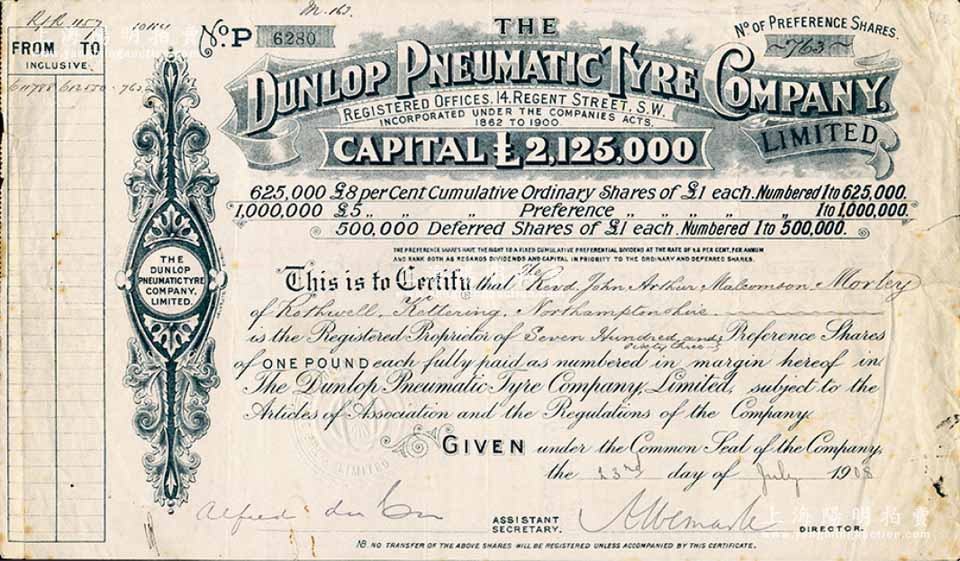 R/R 1157
M. 163
FROM TO
INCLUSIVE
611788 612550 763
No P 6280
No OF PREFERENCE SHARES.
763
THE
DUNLOP PNEUMATIC TYRE COMPANY,
LIMITED
REGISTERED OFFICES, 14, REGENT STREET, S.W.
INCORPORATED UNDER THE COMPANIES ACTS.
1862 TO 1900.
CAPITAL £2,125,000
625,000 £8 per Cent Cumulative Ordinary Shares of £1 each. Numbered 1 to 625,000.
1,000,000 £5 „ „ „ Preference „ „ „ „ „ 1 to 1,000,000.
500,000 Deferred Shares of £1 each. Numbered 1 to 500,000.
THE PREFERENCE SHARES HAVE THE RIGHT TO A FIXED CUMULATIVE PREFERENTIAL DIVIDEND AT THE RATE OF £5 PER CENT, PER ANNUM
AND RANK BOTH AS REGARDS DIVIDENDS AND CAPITAL IN PRIORITY TO THE ORDINARY AND DEFERRED SHARES.
THE
DUNLOP
PNEUMATIC TYRE
COMPANY,
LIMITED.
This is to Certify that The Revd. John Arthur Malcomson Morley
of Rothwell, Kettering, Northamptonshire
is the Registered Proprietor of Seven Hundred and sixty three Preference Shares
of ONE POUND each fully paid as numbered in margin hereof in
The Dunlop Pneumatic Tyre Company, Limited, subject to the
Articles of Association and the Regulations of the Company.
GIVEN under the Common Seal of the Company,
the 23rd day of July 1908
LIMITED
Alfred
ASSISTANT
SECRETARY.
DIRECTOR.
NB. NO TRANSFER OF THE ABOVE SHARES WILL BE REGISTERED UNLESS ACCOMPANIED BY THIS CERTIFICATE.
上海陽明拍賣
www.yangmingauction.com